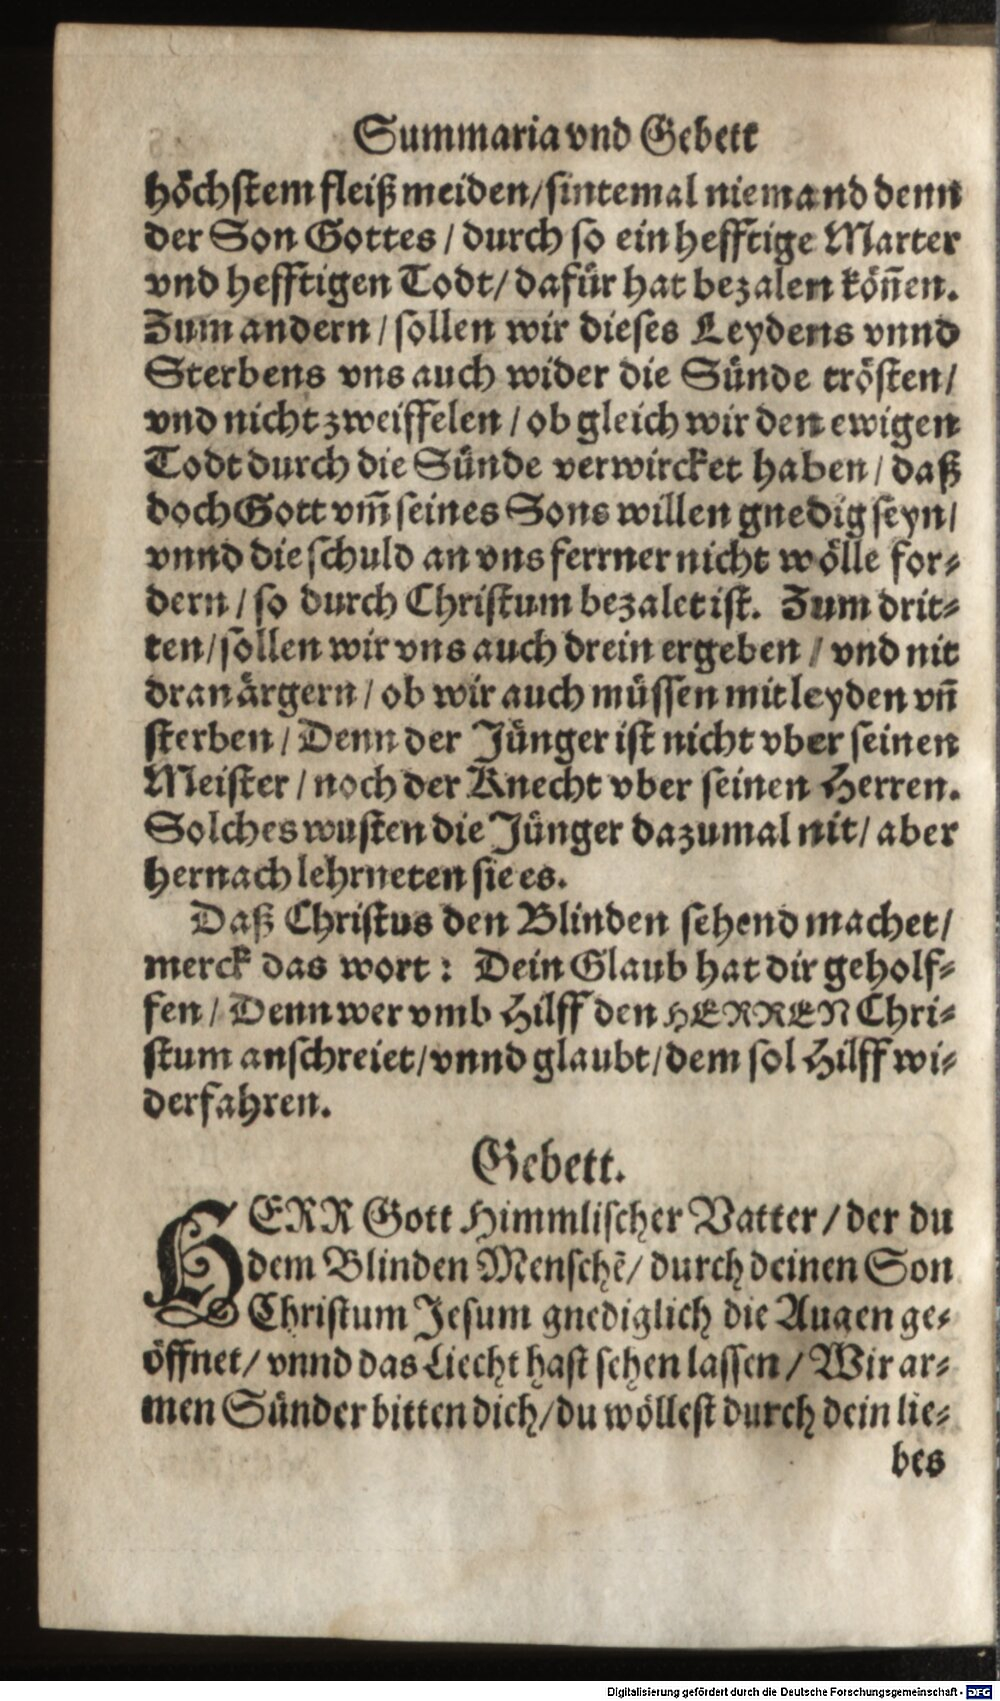 Summaria vnd Gebett
höchstem fleiß meiden / sintemal niemand denn
der Son Gottes / durch so ein hefftige Marter
vnd hefftigen Todt / dafür hat bezalen könn̄en.
Zum andern / sollen wir dieses Leydens vnnd
Sterbens vns auch wider die Sünde trösten /
vnd nicht zweiffelen / ob gleich wir den ewigen
Todt durch die Sünde verwircket haben / daß
doch Gott vm̄ seines Sons willen gnedig seyn /
vnnd die schuld an vns ferrner nicht wölle for-
dern / so durch Christum bezalet ist. Zum drit-
ten / sollen wir vns auch drein ergeben / vnd nit
dran ärgern / ob wir auch müssen mit leyden vn̄
sterben / Denn der Jünger ist nicht vber seinen
Meister / noch der Knecht vber seinen Herren.
Solches wusten die Jünger dazumal nit / aber
hernach lehrneten sie es.
Daß Christus den Blinden sehend machet /
merck das wort : Dein Glaub hat dir geholf-
fen / Denn wer vmb Hilff den HERREN Chri-
stum anschreiet / vnnd glaubt / dem sol Hilff wi-
derfahren.
Gebett.
HERR Gott Himmlischer Vatter / der du
dem Blinden Menschē / durch deinen Son
Christum Jesum gnediglich die Augen ge-
öffnet / vnnd das Liecht hast sehen lassen / Wir ar-
men Sünder bitten dich / du wöllest durch dein lie-
bes
Digitalisierung gefördert durch die Deutsche Forschungsgemeinschaft - DFG